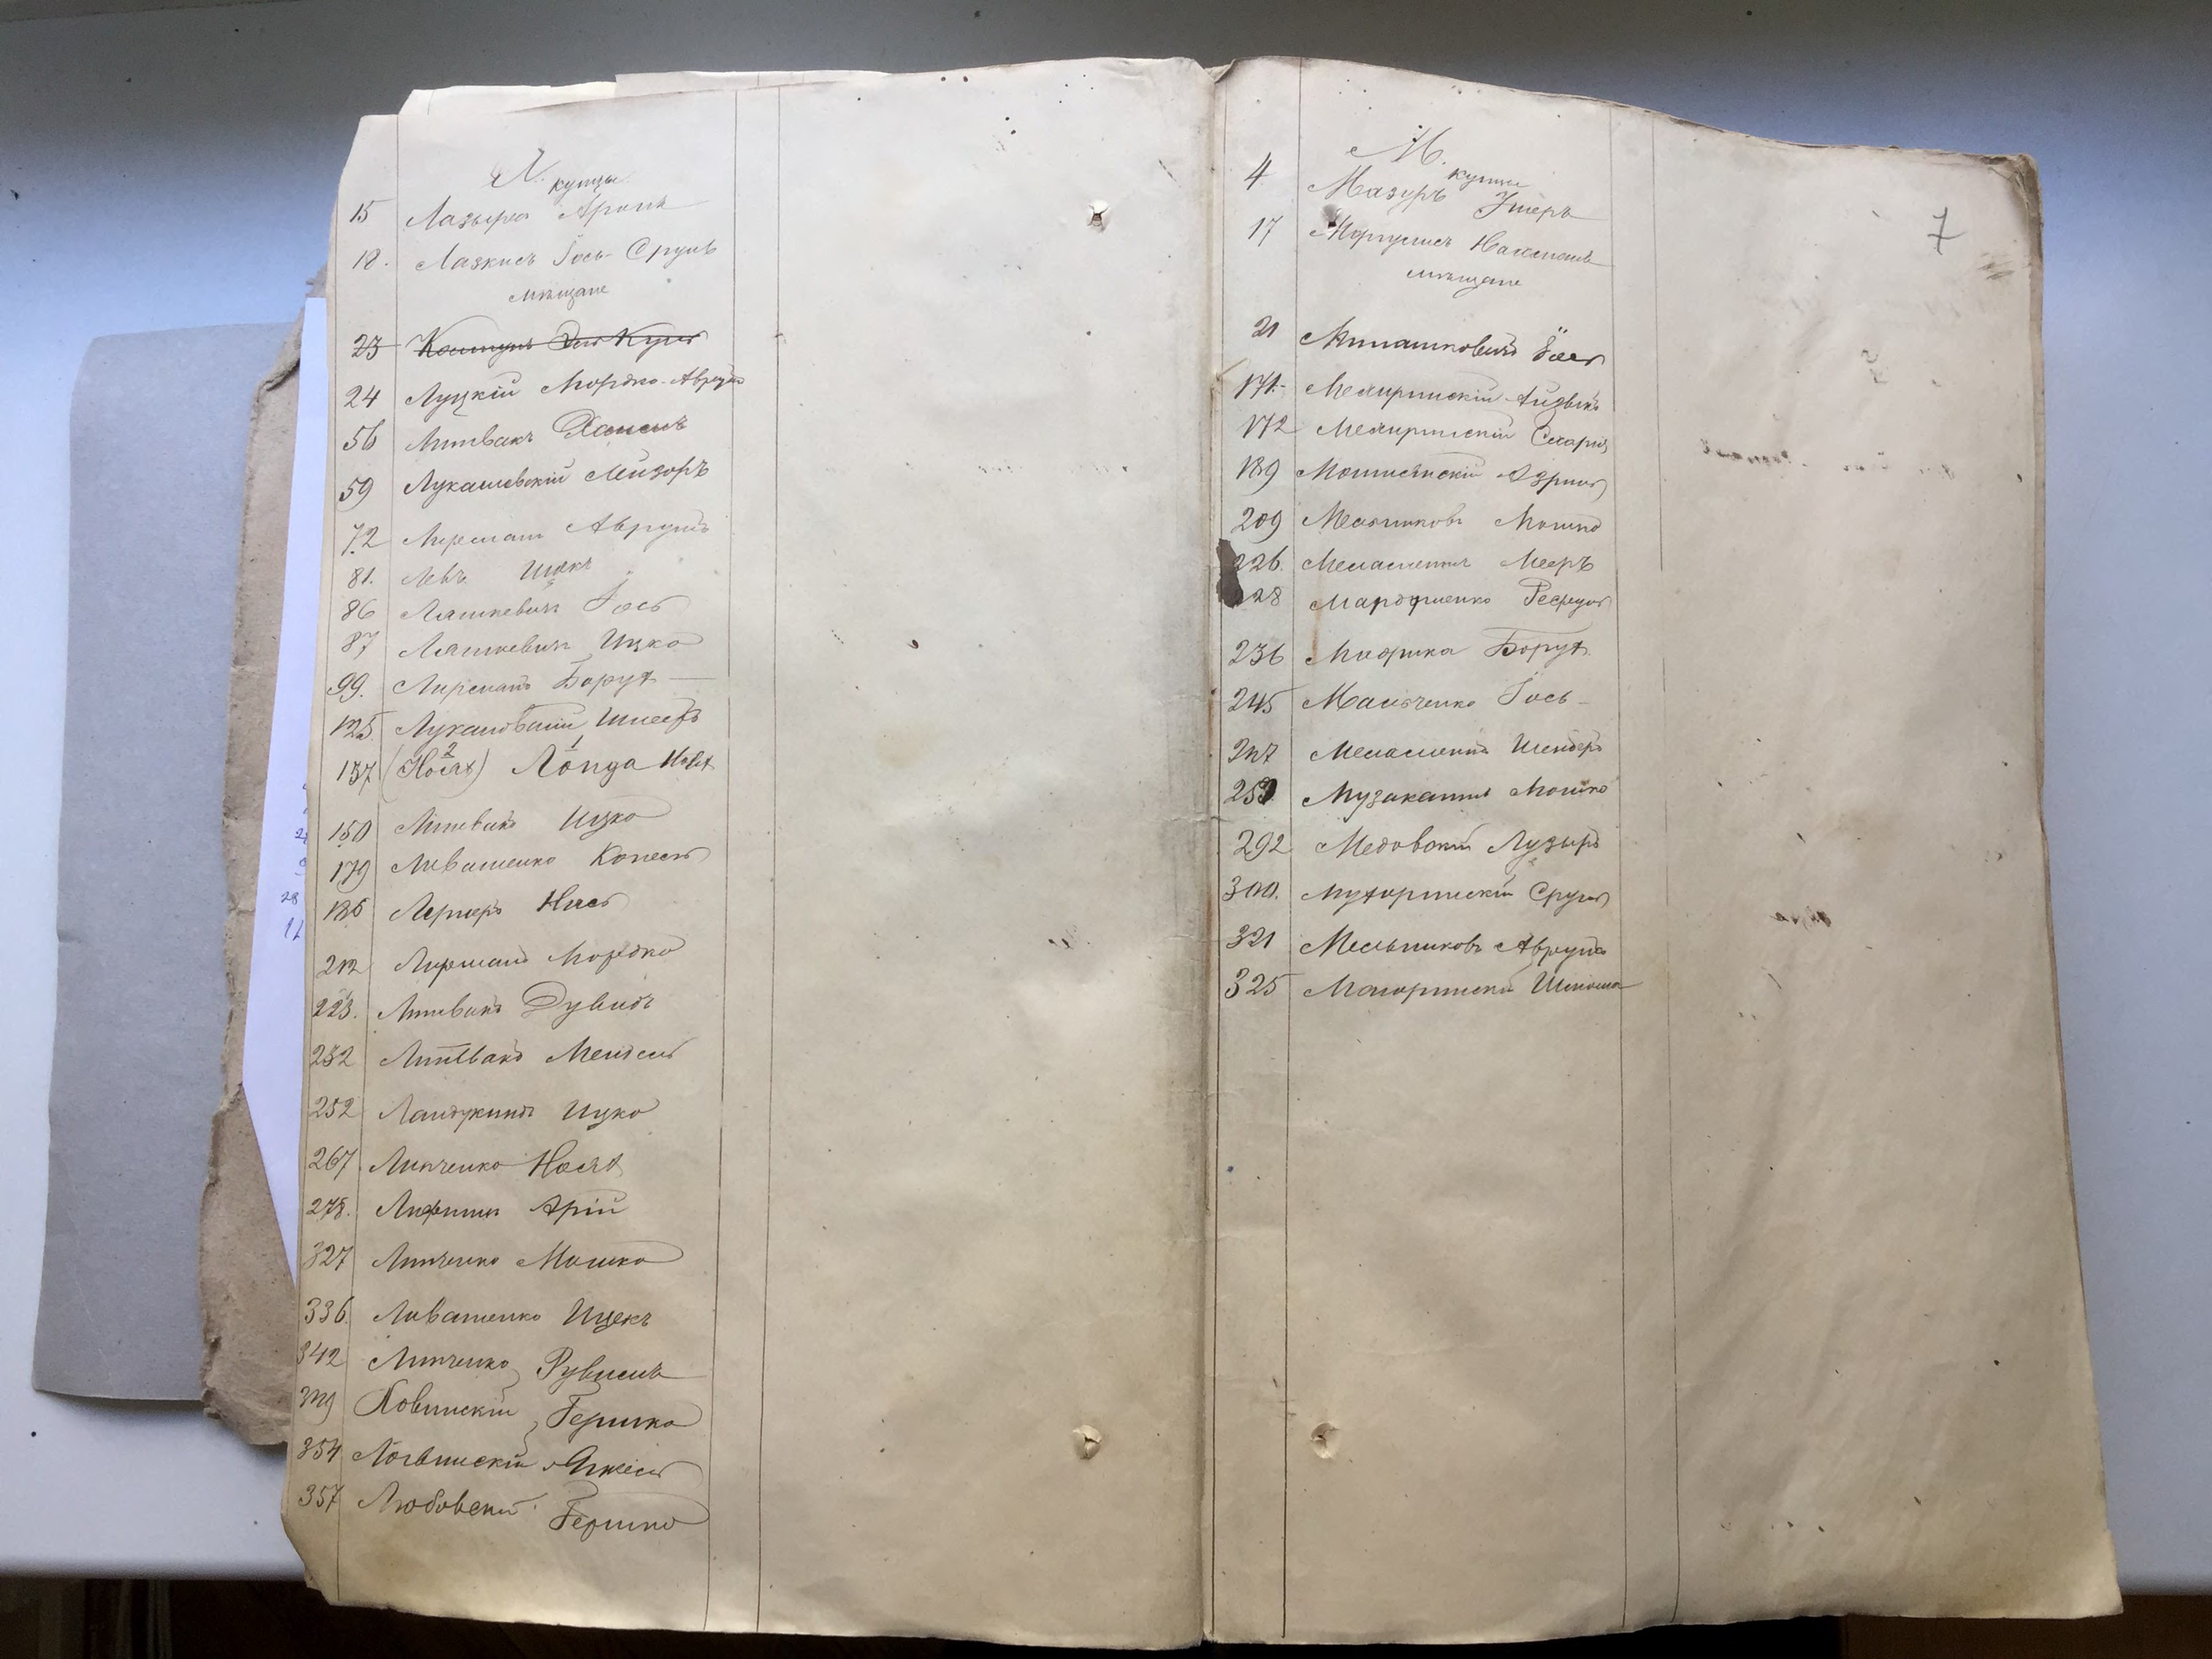 Л. купцы
15 Лазырка Аронъ
18. Лазкисъ Іось-Срулъ
мѣщане
23
24 Луцкій Мордко-Аврумъ
56 Литвакъ Хаимъ
59 Лукашевскій Мейзоръ
72 Лирманъ Аврумъ
81. Левъ Ицекъ
86 Ляшкевичъ Іось
87 Ляшкевичъ Ицко
99. Лирманъ Борухъ
125 Лукашовскій Шмееръ
137 (Носяхъ) 2 Лопда 1
150 Литвакъ Ицко
179 Ливашенко Копель
186 Лернеръ Нисъ
212 Лирманъ Мордко
223. Литвакъ Дувидъ
232 Литвакъ Мендель
252 Ландкиндъ Ицко
267 Липченко Носяхъ
278. Лифшицъ Арій
327 Липченко Мошко
336 Ливашенко Ицекъ
342 Липченко Рувинъ
349 Ловинскій Гершко
354 Логвинскій Янкель
357 Любовскій Гершко
7
М. купцы
4 Мазуръ Ушеръ
17 Моргулисъ Нахманъ
мѣщане
21 Милашковичъ Іось
171. Межиринскій Айзыкъ
172 Межиринскій Сахарія
189 Мошинскій Азриль
209 Мельниковъ Мошко
226. Меламентъ Мееръ
228 Мардфиенко
236 Мафика Борухъ
245 Мальченко Іось
247 Меламентъ Шендеръ
259 Музыкантъ Мошко
292 Медовскій Лузыръ
300. Мухоринскій Срулъ
321 Мельниковъ Аврумъ
325 Магоринскій Шлиома